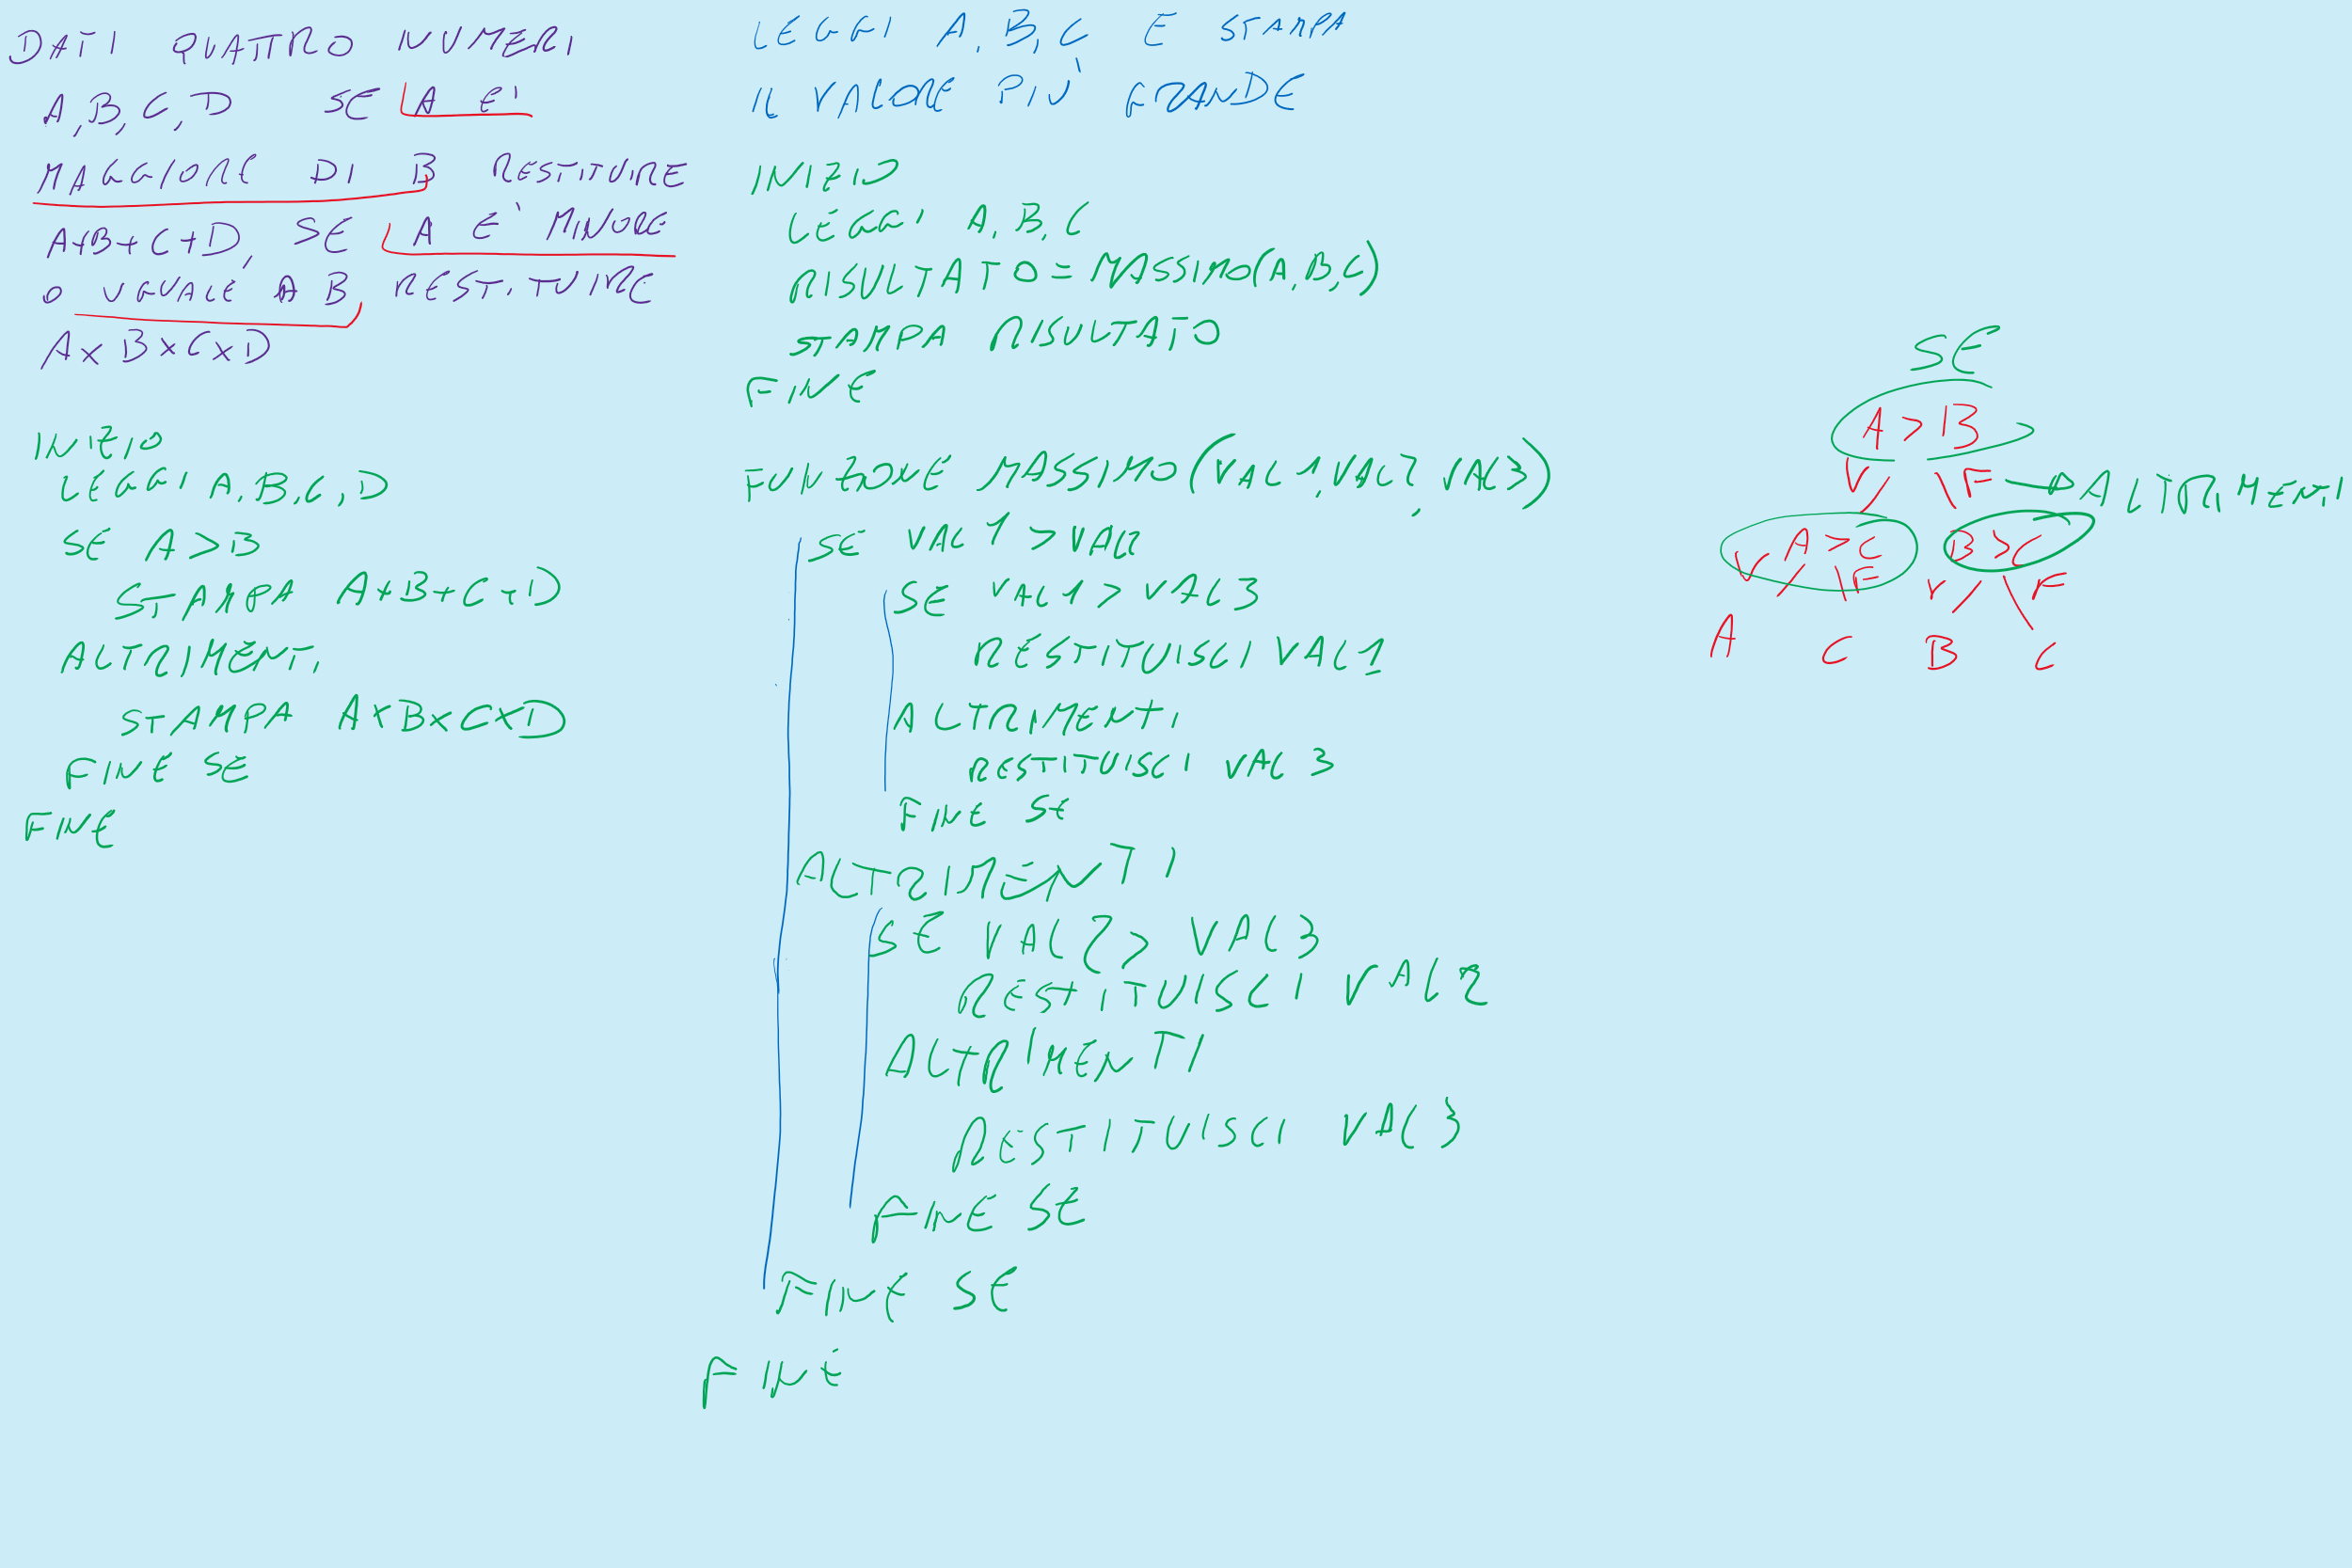 DATI QUATTRO NUMERI
A, B, C, D SE A E'
MAGGIORE DI B RESTITUIRE
A+B+C+D, SE A E' MINORE
O UGUALE A B RESTITUIRE
A×B×C×D
INIZIO
LEGGI A, B, C, D
SE A > B
STAMPA A+B+C+D
ALTRIMENTI
STAMPA A×B×C×D
FINE SE
FINE
LEGGI A, B, C E STAMPA
IL VALORE PIÙ GRANDE
INIZIO
LEGGI A, B, C
RISULTATO = MASSIMO(A, B, C)
STAMPA RISULTATO
FINE
FUNZIONE MASSIMO(VAL1, VAL2, VAL3)
SE VAL1 > VAL2
SE VAL1 > VAL3
RESTITUISCI VAL1
ALTRIMENTI
RESTITUISCI VAL3
FINE SE
ALTRIMENTI
SE VAL2 > VAL3
RESTITUISCI VAL2
ALTRIMENTI
RESTITUISCI VAL3
FINE SE
FINE SE
FINE
SE
A > B
V F → ALTRIMENTI
A > C B > C
V F V F
A C B C